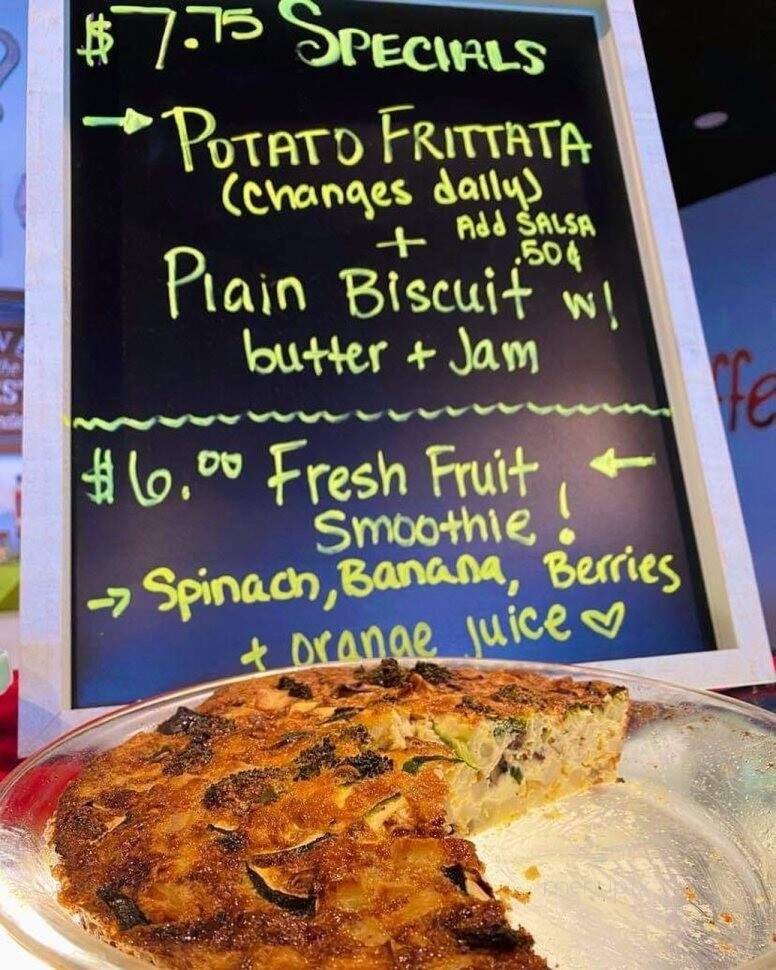 $7.75 SPECIALS
→ POTATO FRITTATA
(changes daily)
+ Add SALSA
.50¢
Plain Biscuit w/
butter + Jam
$6.00 Fresh Fruit ←
Smoothie!
→ Spinach, Banana, Berries
+ orange juice ♡
ffe